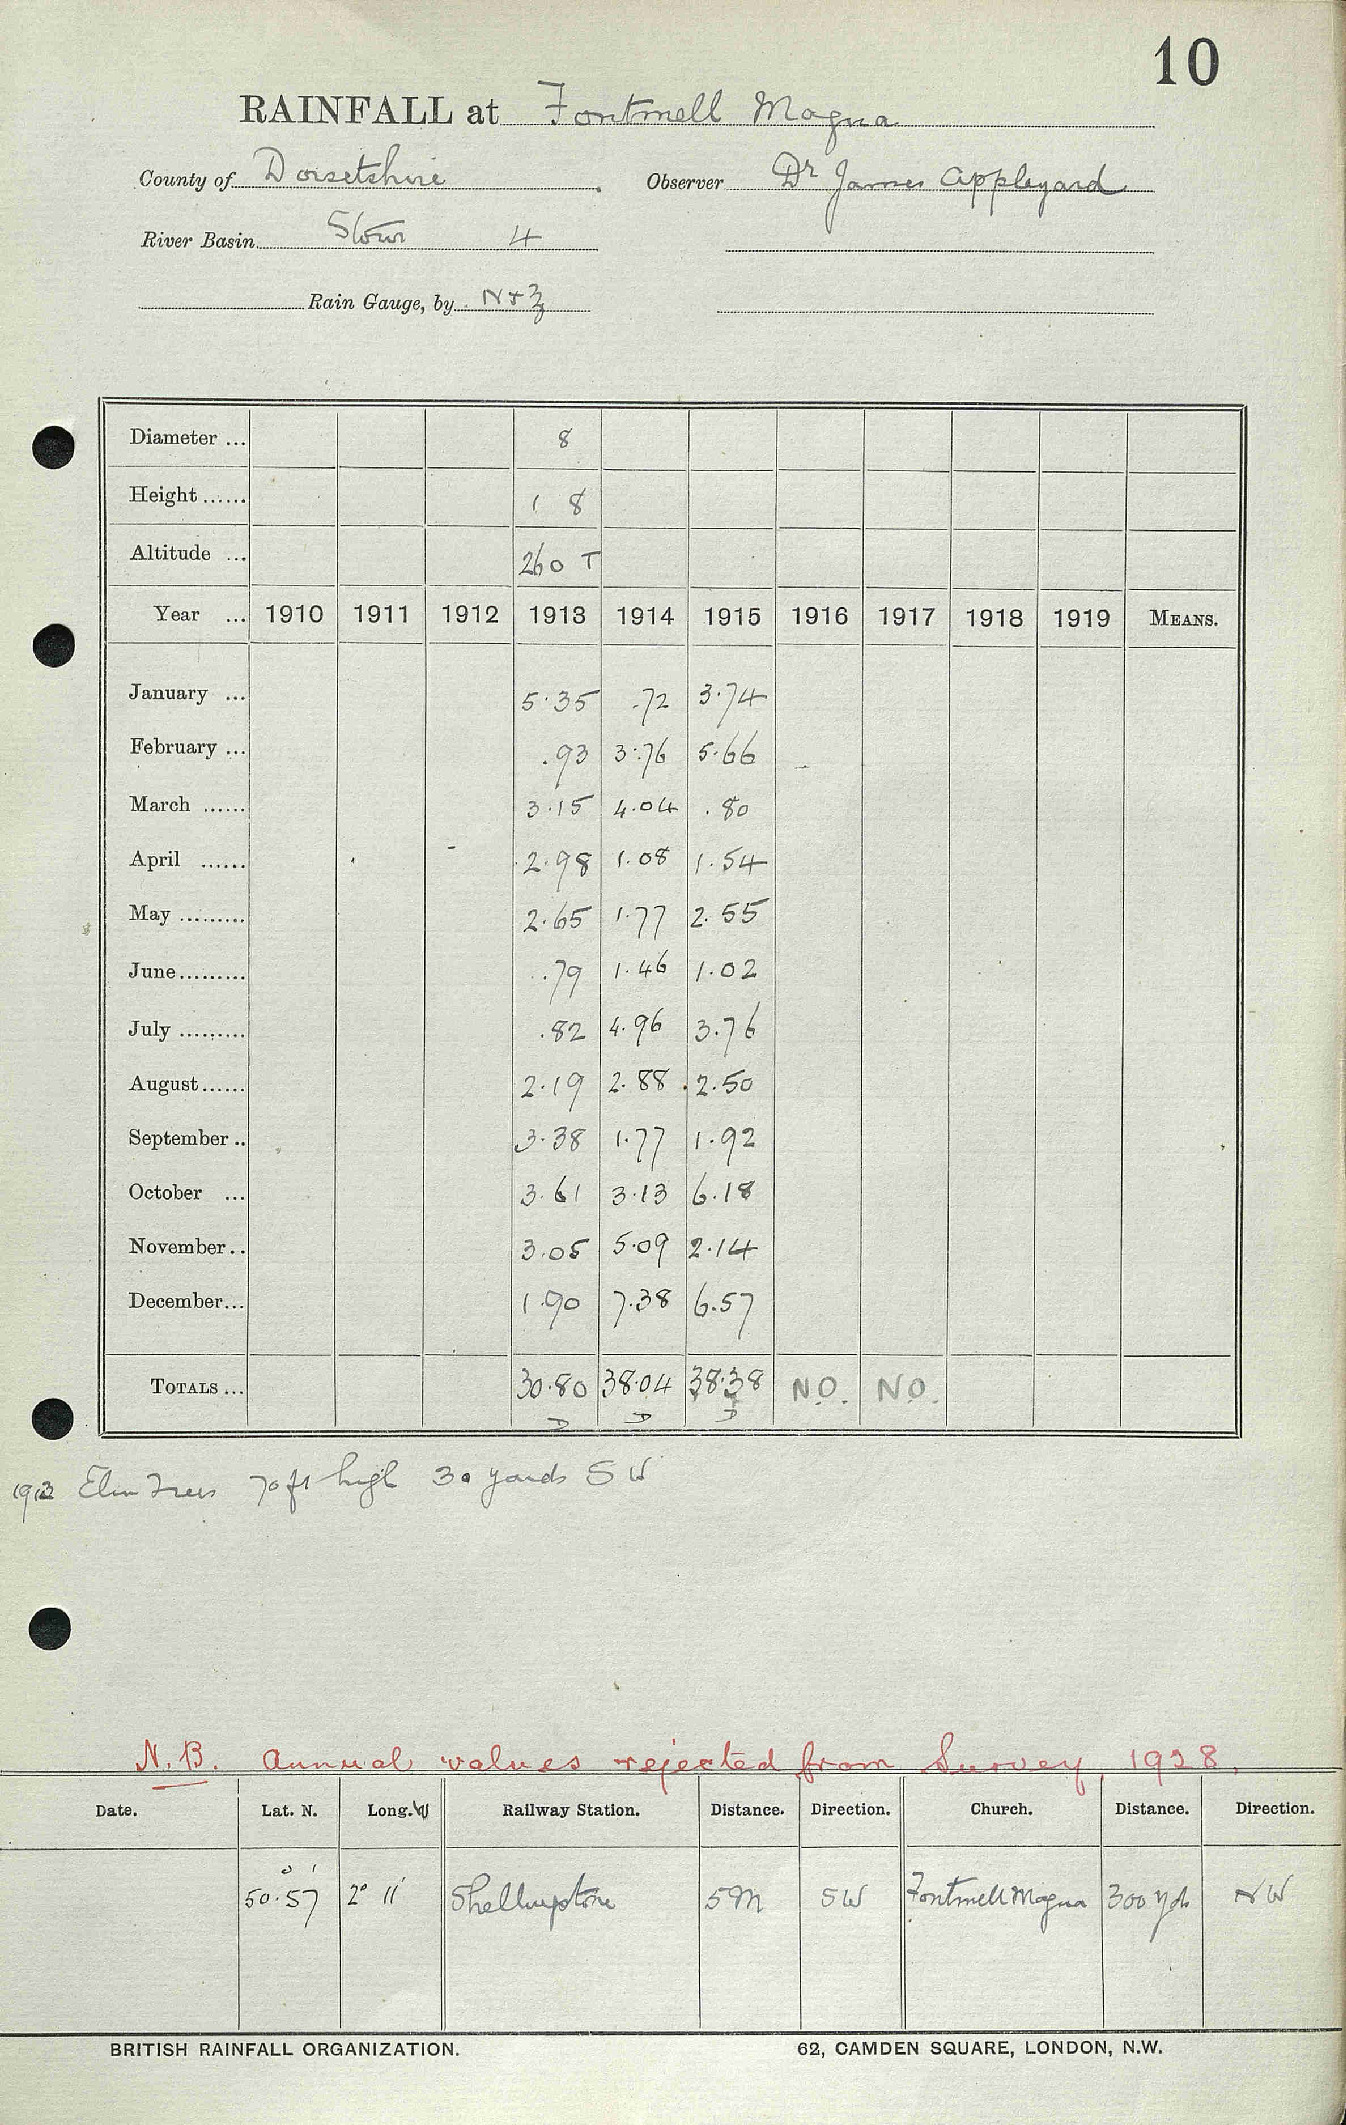 10
RAINFALL at Fontmell Magna
County of Dorsetshire. Observer Dr James Appleyard
River Basin Stour 4
Rain Gauge, by N & Z
Diameter ... 8
Height ...... 1 8
Altitude ... 260 T
Year ... 1910 1911 1912 1913 1914 1915 1916 1917 1918 1919 MEANS.
January ... 5.35 .72 3.74
February ... .93 3.76 5.66
March ...... 3.15 4.04 .80
April ...... 2.98 1.08 1.54
May ......... 2.65 1.77 2.55
June ......... .79 1.46 1.02
July ......... .82 4.96 3.76
August ...... 2.19 2.88 2.50
September .. 3.38 1.77 1.92
October ... 3.61 3.13 6.18
November .. 3.05 5.09 2.14
December ... 1.90 7.38 6.57
TOTALS ... 30.80 38.04 38.38 N.O. N.O.
D D D
1913 Elm Trees 70 ft high 30 yards SW
N.B. Annual values rejected from Survey, 1928.
Date. Lat. N. Long. W Railway Station. Distance. Direction. Church. Distance. Direction.
50° 57' 2° 11' Shillingstone 5 M SW Fontmell Magna 300 yds NW
BRITISH RAINFALL ORGANIZATION. 62, CAMDEN SQUARE, LONDON, N.W.